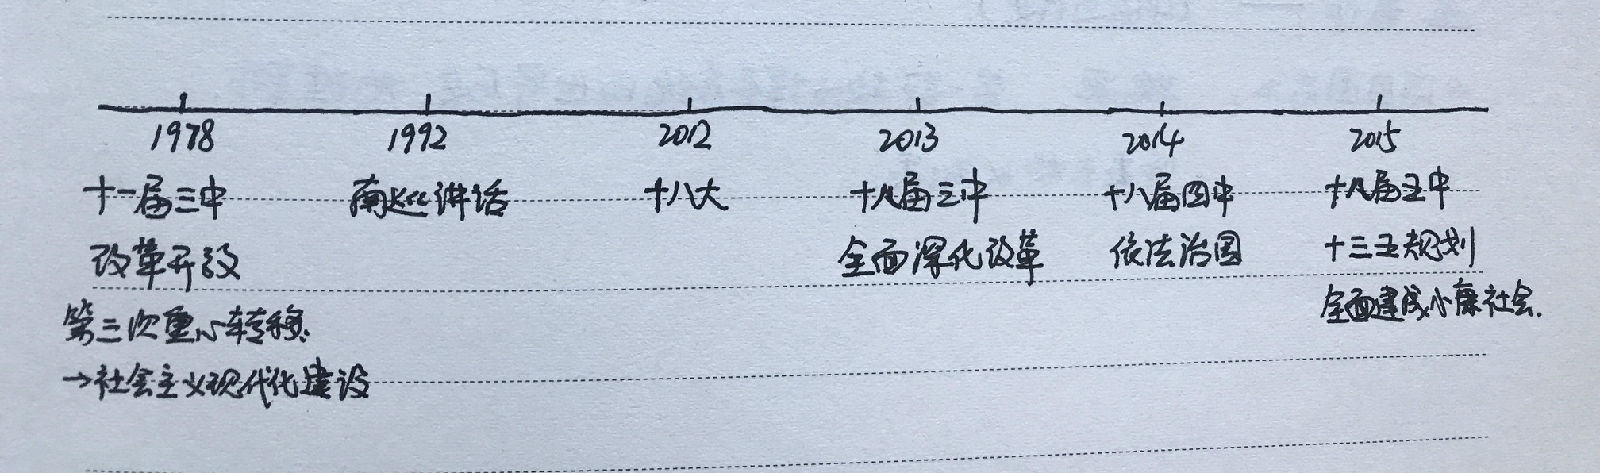 1978 1992 2012 2013 2014 2015
十一届三中 南巡讲话 十八大 十八届三中 十八届四中 十八届五中
改革开放 全面深化改革 依法治国 十三五规划
第三次重心转移. 全面建成小康社会.
→社会主义现代化建设